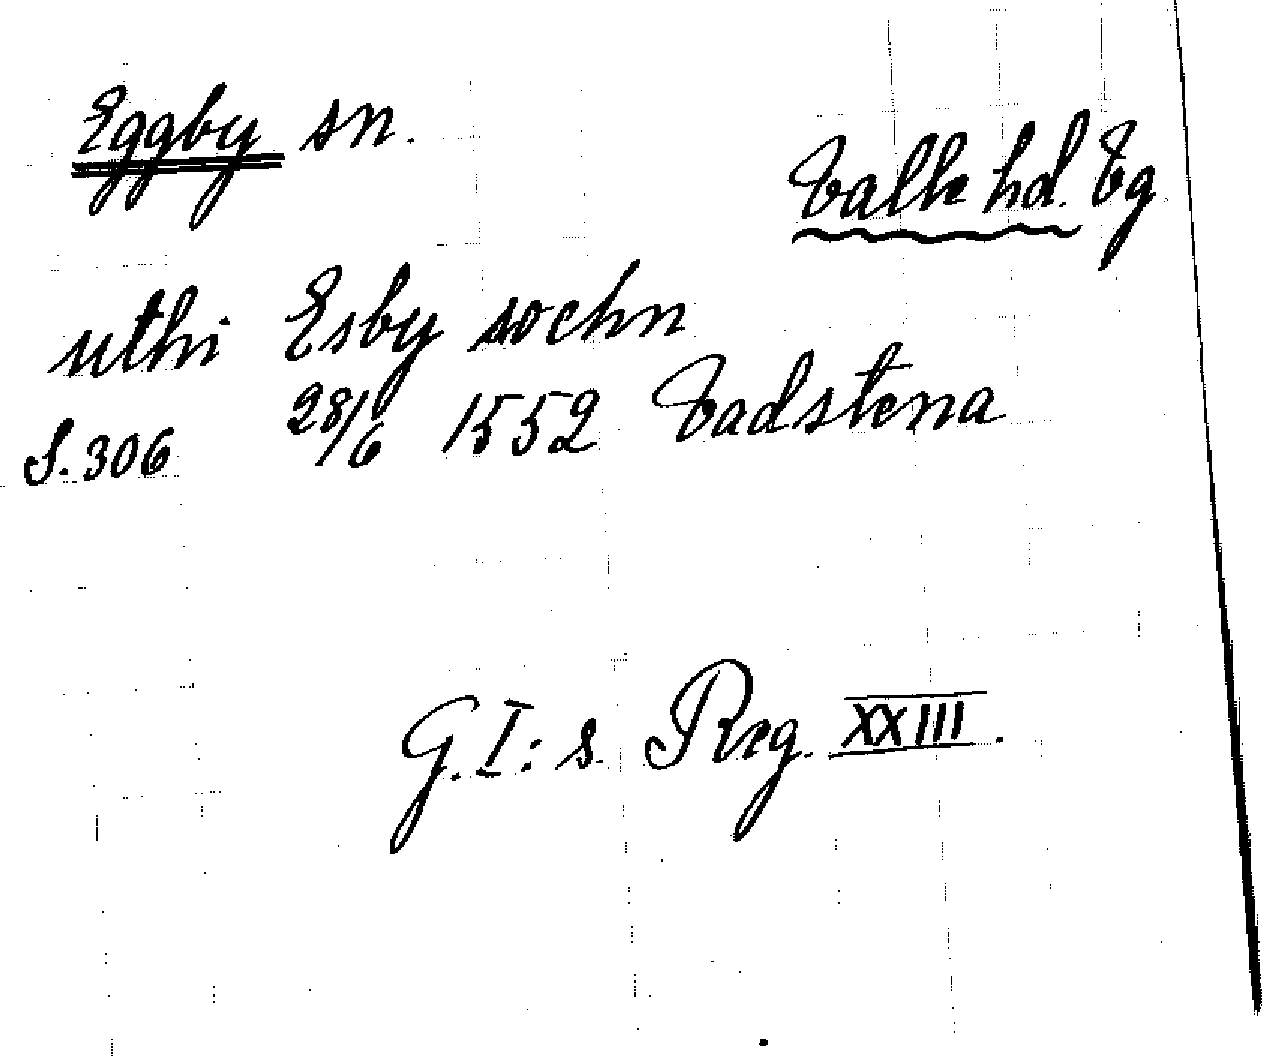 Eggby sn.
Valle hd. Vg
uthi Esby sochn
S. 306 28/6 1552 Vadstena
G. I: s. Reg. XXIII.